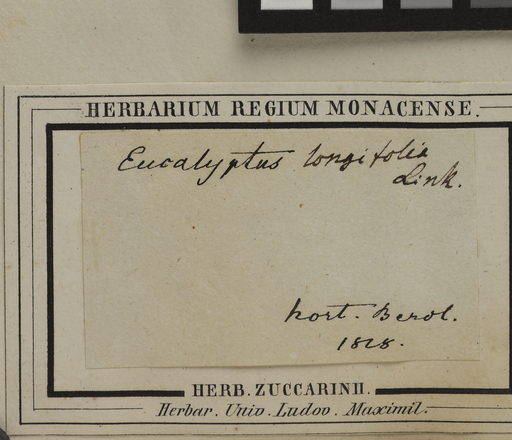 HERBARIUM REGIUM MONACENSE.
Eucalyptus longifolia
Link.
hort. Berol.
1828.
HERB. ZUCCARINII.
Herbar. Univ. Ludov. Maximil.